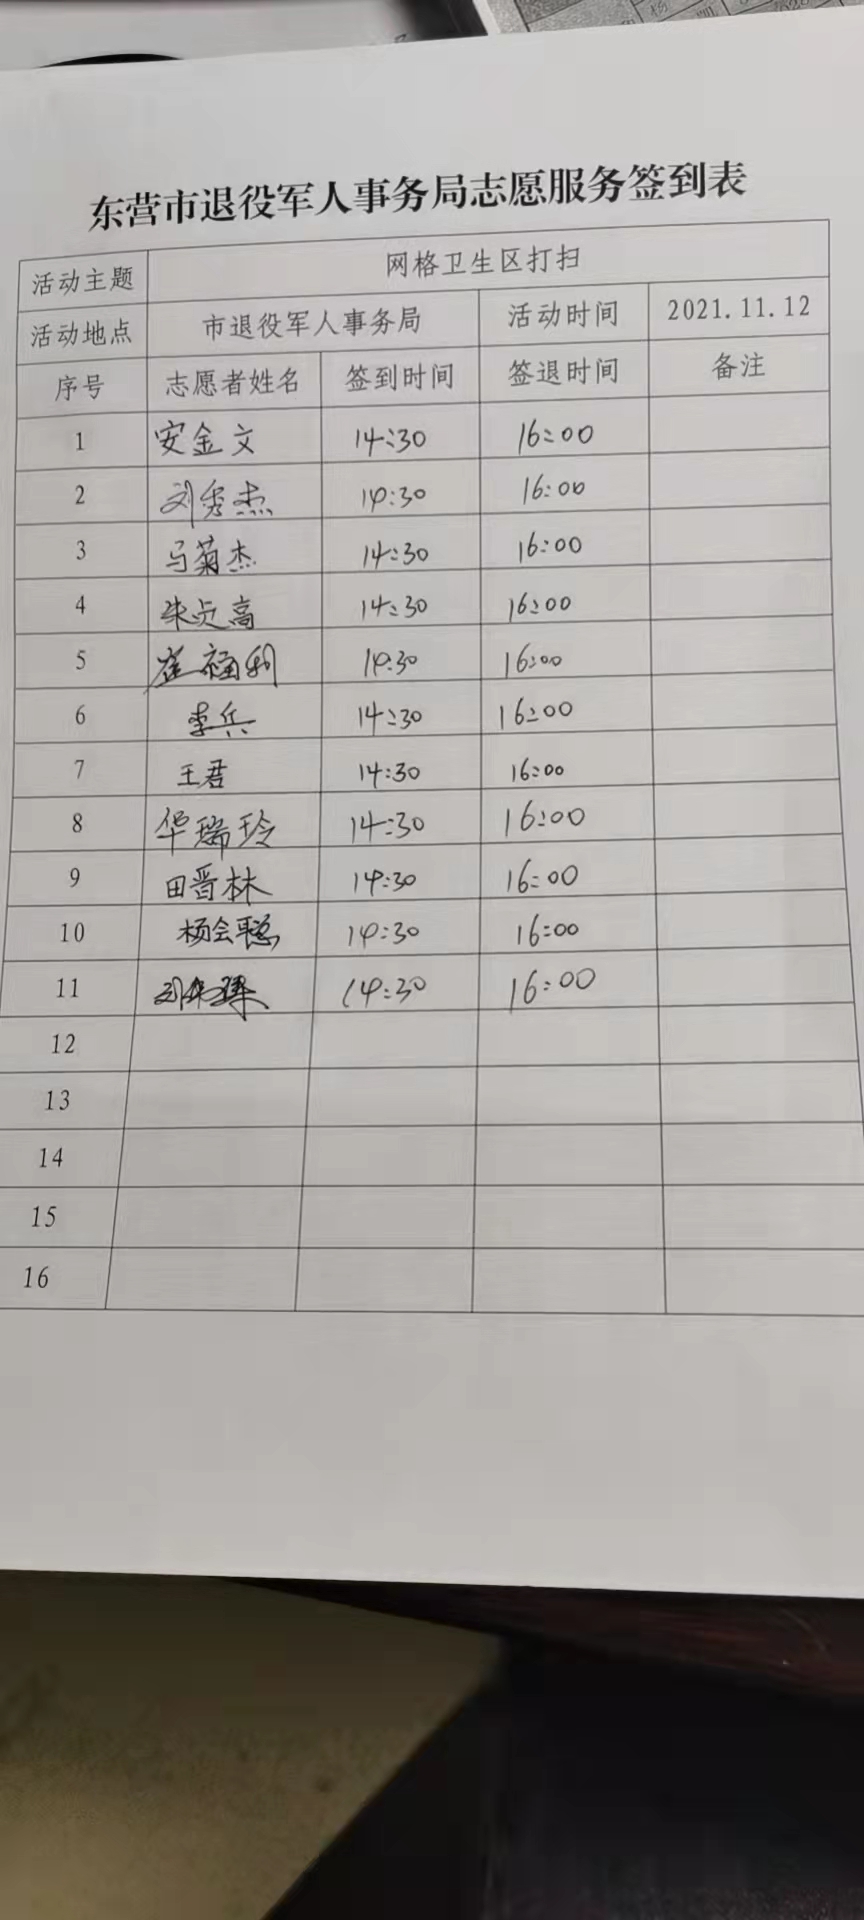 东营市退役军人事务局志愿服务签到表
活动主题 网格卫生区打扫
活动地点 市退役军人事务局 活动时间 2021.11.12
序号 志愿者姓名 签到时间 签退时间 备注
1 安金文 14:30 16:00
2 刘秀杰 14:30 16:00
3 马菊杰 14:30 16:00
4 朱贞高 14:30 16:00
5 崔福利 14:30 16:00
6 李兵 14:30 16:00
7 王君 14:30 16:00
8 华瑞玲 14:30 16:00
9 田晋林 14:30 16:00
10 杨会聪 14:30 16:00
11 14:30 16:00
12
13
14
15
16